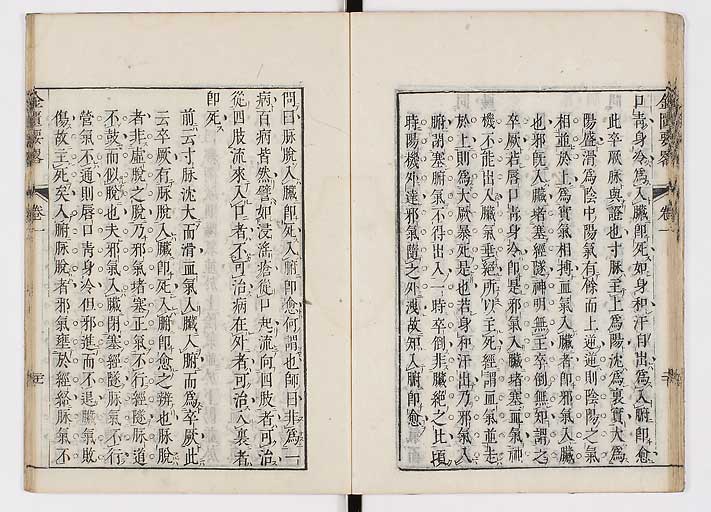 口靑身冷爲入臟卽死如身和汗自出爲入腑卽愈
此卒厥脉與證也寸脉主上爲陽沈爲裏實大爲
陽盛滑爲陰中陽氣有餘而上逆逆則陰陽之氣
相並於上爲實氣相搏血氣入臟者卽邪氣入臟
也邪旣入臟堵塞經隧神明無主卒倒無知謂之
卒厥若唇口靑身冷卽是邪氣入臟堵塞血氣神
機不能出入臟氣垂絕所以主死經謂血氣並走
於上則爲大厥暴死是也若身和汗出乃邪氣入
腑謂塞腑氣不得出入一時卒倒非臟絕之比頃
時陽機外達邪氣隨之外洩故知入腑卽愈
問曰脉脫入臟卽死入腑卽愈何謂也師曰非爲一
病百病皆然譬如浸淫瘡從口起流向四肢者可治
從四肢流來入口者不可治病在外者可治入裏者
卽死
前云寸脉沈大而滑血氣入臟入腑而爲卒厥此
云卒厥有脉脫入臟卽死入腑卽愈之辨也脉脫
者非虛脫之脫乃邪氣堵塞正氣不行經隧脉道
不鼓而似脫也夫邪氣入臟閉塞經隧脉氣不行
營氣不通則唇口靑身冷但邪進而不退臟氣敗
傷故主死矣入腑脉脫者邪氣壅於經絡脉氣不
金匱要畧
卷一
金匱要畧
卷一